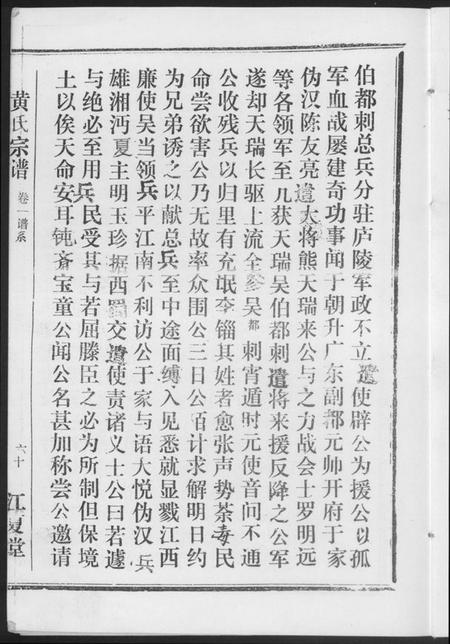 伯都刺总兵分驻庐陵军政不立遣使辟公为援公以孤
军血战屡建奇功事闻于朝升广东副都元帅开府于家
伪汉陈友亮遣大将熊天瑞来公与之方战会士罗明远
等各领军至几获天瑞吴伯都刺遣将来援反降之公军
遂却天瑞长驱上流全参吴都刺宵遁时元使音问不通
公收残兵以归里有充氓李锱其姓者愈张声势荼毒民
命尝欲害公乃无故率众围公三日公佰计求解明日约
为兄弟诱之以献总兵至中途面缚入见悉就显戮江西
廉使吴当领兵平江南不利访公于家与语大悦伪汉兵
雄湘沔夏主明玉珍据西蜀交遣使责诸义士公曰若遽
与绝必至用兵民受其与若屈滕臣之必为所制但保境
土以俟天命安耳钝斋宝童公闻公名甚加称尝公邀请
黄氏宗谱
卷一谱系
六十
江夏堂